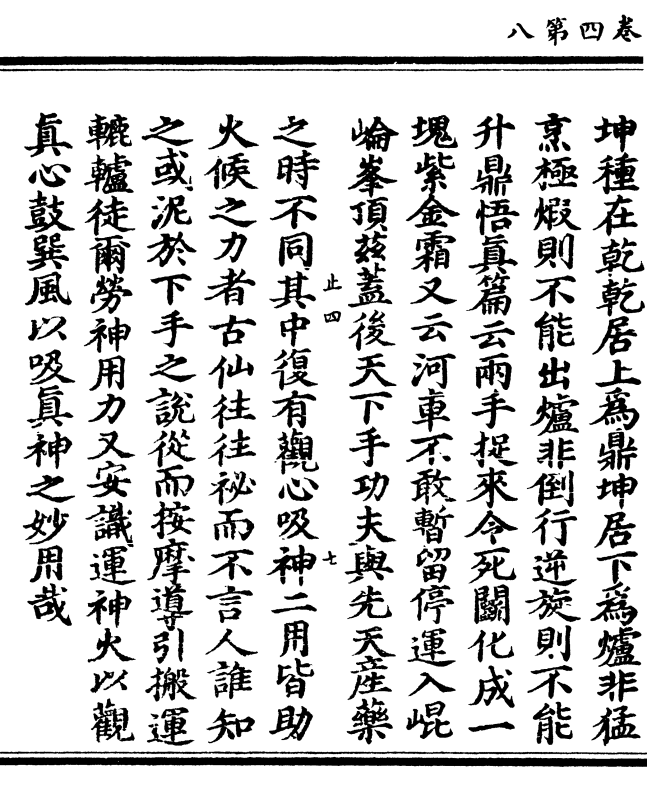 卷四第八
坤種在乾乾居上為鼎坤居下為爐非猛
烹極煆則不能出爐非倒行逆旋則不能
升鼎悟真篇云兩手捉來令死鬬化成一
塊紫金霜又云河車不敢暫留停運入崐
崘峯頂茲蓋後天下手功夫與先天產藥
止四
七
之時不同其中復有觀心吸神二用皆助
火候之力者古仙往往祕而不言人誰知
之或泥於下手之說從而按摩導引搬運
轆轤徒爾勞神用力又安識運神火以觀
真心鼓巽風以吸真神之妙用哉